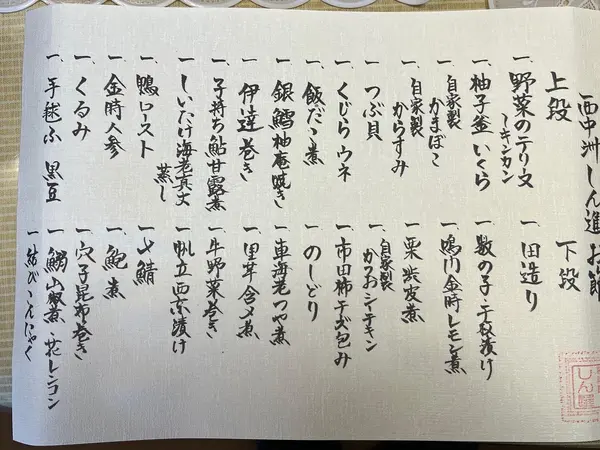 西中洲しん進 お節
上段
一、野菜のテリーヌ
ーキンカン
一、柚子釜いくら
一、自家製
かまぼこ
一、自家製
からすみ
一、つぶ貝
一、くじらウネ
一、飯だこ煮
一、銀鱈柚庵焼き
一、伊達巻き
一、子持ち鮎甘露煮
一、しいたけ海老真丈
蒸し
一、鴨ロースト
一、金時人参
一、くるみ
一、手毬ふ 黒豆
下段
一、田造り
一、数の子
一、鳴門金時レモン煮
一、栗渋皮煮
一、自家製
かつお
一、市田柿チーズ包み
一、のしどり
一、車海老つや煮
一、里芋含メ煮
一、牛野菜巻き
一、帆立西京漬け
一、〆鯖
一、鮑煮
一、穴子昆布巻き
一、鰯山椒煮・花レンコン
一、結びこんにゃく